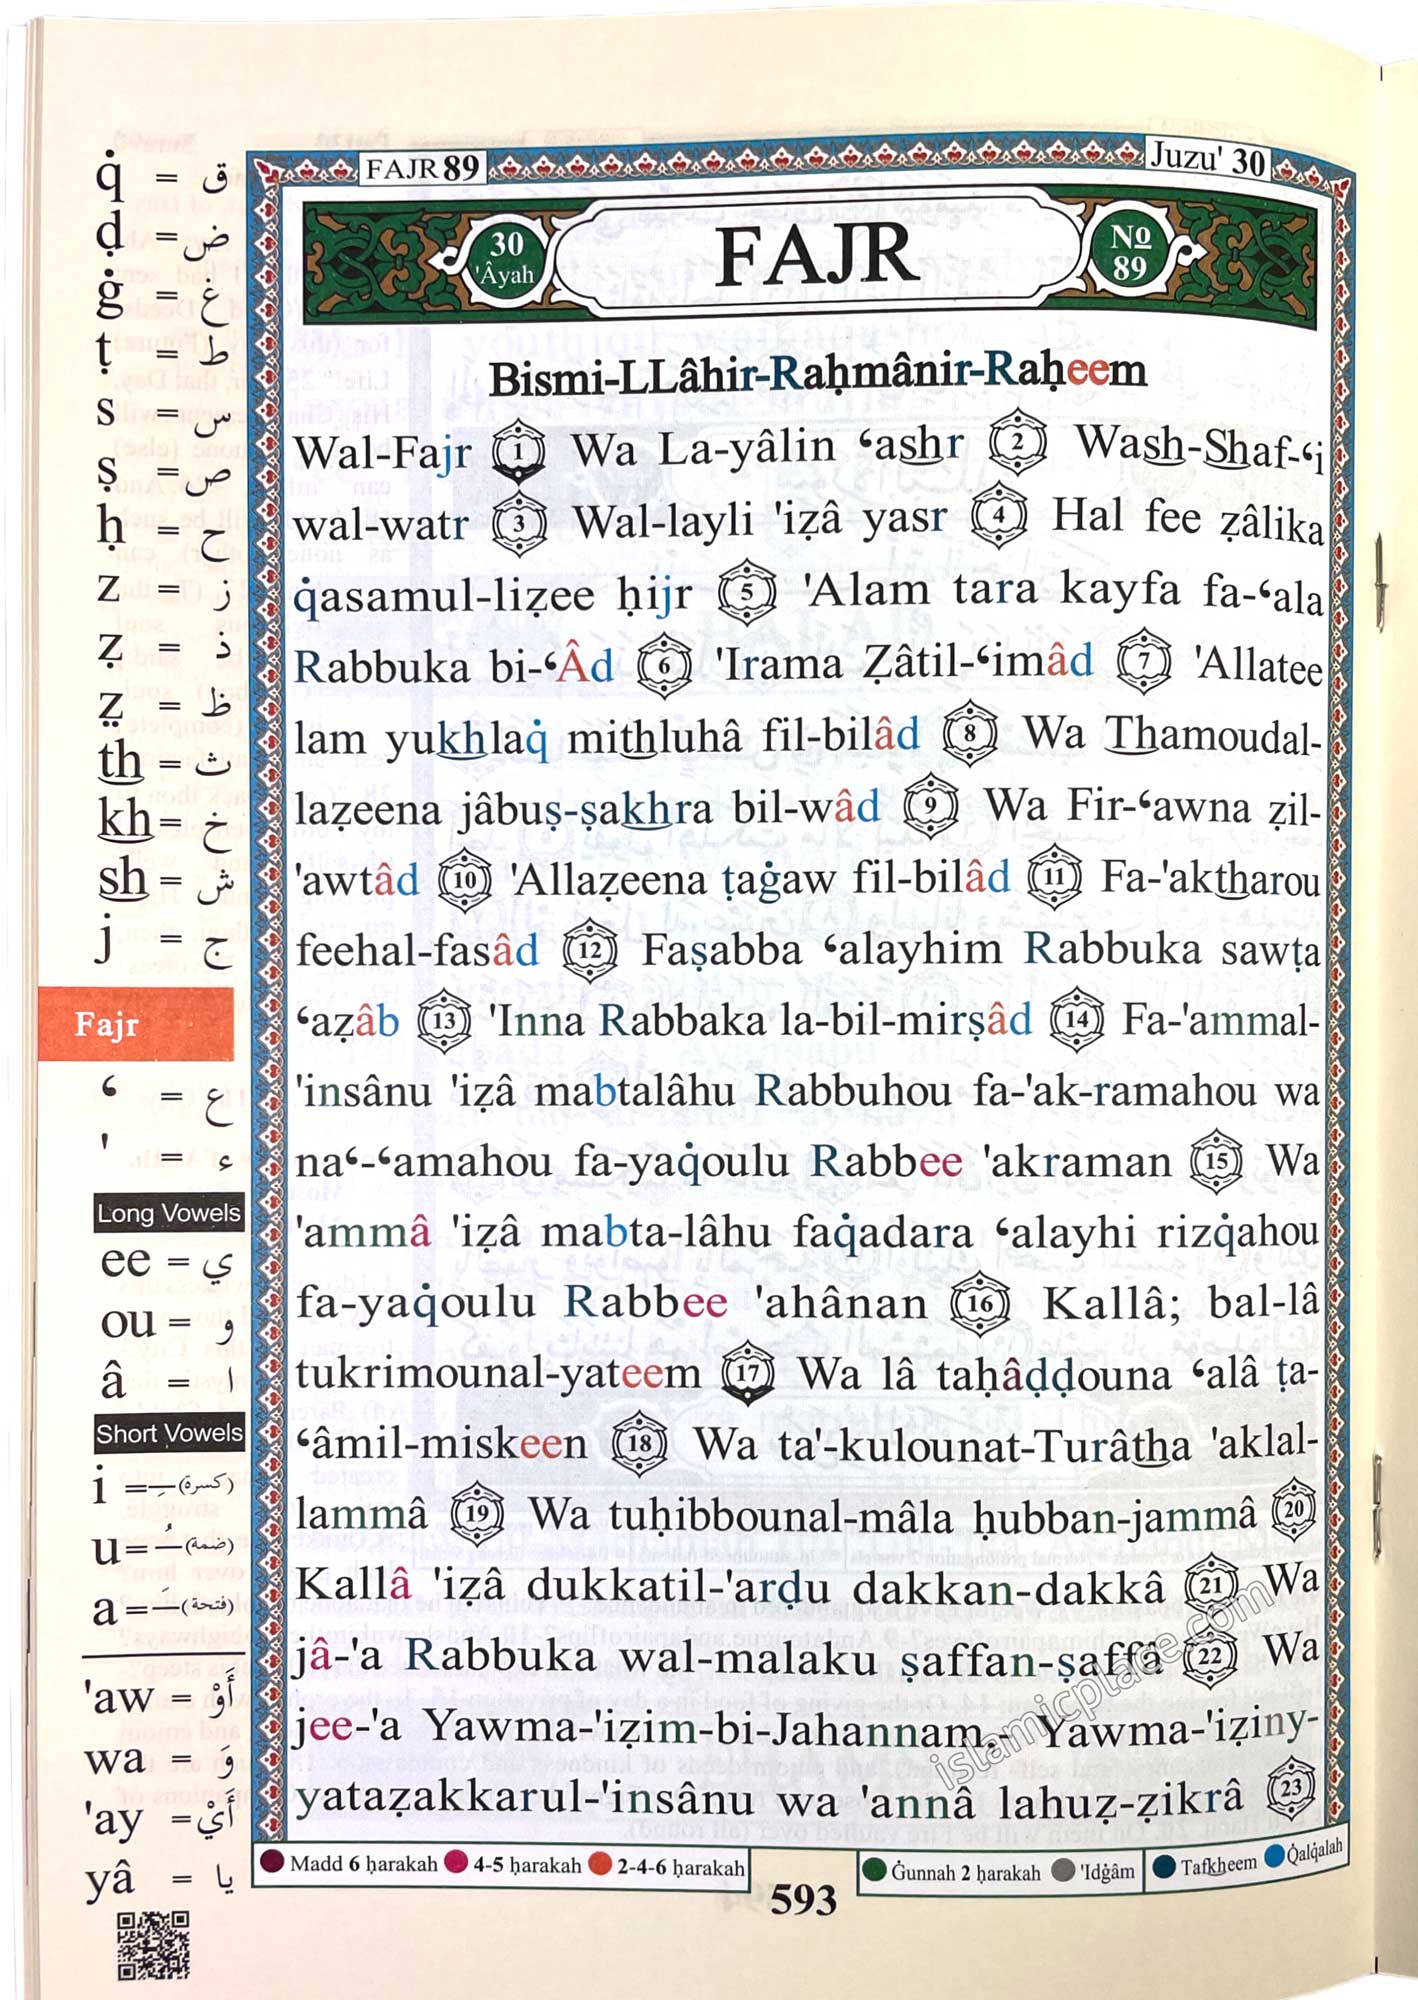 FAJR 89
Juzu' 30
30
'Âyah
FAJR
№
89
Bismi-LLâhir-Raḥmânir-Raḥeem
Wal-Fajr 1 Wa La-yâlin ʻashr 2 Wash-Shaf-ʻi
wal-watr 3 Wal-layli 'iẓâ yasr 4 Hal fee ẓâlika
q̇asamul-liẓee ḥijr 5 'Alam tara kayfa fa-ʻala
Rabbuka bi-ʻÂd 6 'Irama Ẓâtil-ʻimâd 7 'Allatee
lam yukhlaq̇ mithluhâ fil-bilâd 8 Wa Thamoudal-
laẓeena jâbuṣ-ṣakhra bil-wâd 9 Wa Fir-ʻawna ẓil-
'awtâd 10 'Allaẓeena ṭaġaw fil-bilâd 11 Fa-'aktharou
feehal-fasâd 12 Faṣabba ʻalayhim Rabbuka sawṭa
ʻaẓâb 13 'Inna Rabbaka la-bil-mirṣâd 14 Fa-'ammal-
'insânu 'iẓâ mabtalâhu Rabbuhou fa-'ak-ramahou wa
naʻ-ʻamahou fa-yaq̇oulu Rabbee 'akraman 15 Wa
'ammâ 'iẓâ mabta-lâhu faq̇adara ʻalayhi rizq̇ahou
fa-yaq̇oulu Rabbee 'ahânan 16 Kallâ; bal-lâ
tukrimounal-yateem 17 Wa lâ taḥâḍḍouna ʻalâ ṭa-
ʻâmil-miskeen 18 Wa ta'-kulounat-Turâtha 'aklal-
lammâ 19 Wa tuḥibbounal-mâla ḥubban-jammâ 20
Kallâ 'iẓâ dukkatil-'arḍu dakkan-dakkâ 21 Wa
jâ-'a Rabbuka wal-malaku ṣaffan-ṣaffâ 22 Wa
jee-'a Yawma-'iẓim-bi-Jahannam,- Yawma-'iẓiny-
yataẓakkarul-'insânu wa 'annâ lahuẓ-ẓikrâ 23
islamicplace.com
q̇ = ق
ḍ = ض
ġ = غ
ṭ = ط
s = س
ṣ = ص
ḥ = ح
z = ز
ẓ = ذ
ẓ̤ = ظ
th = ث
kh = خ
sh = ش
j = ج
Fajr
ʻ = ع
' = ء
Long Vowels
ee = ي
ou = و
â = ا
Short Vowels
i = ـِ (كسرة)
u = ـُ (ضمة)
a = ـَ (فتحة)
'aw = أَوْ
wa = و
'ay = أَيْ
yâ = يا
Madd 6 ḥarakah 4-5 ḥarakah 2-4-6 ḥarakah
593
Ġunnah 2 ḥarakah 'Idġâm Tafkheem Q̇alq̇alah